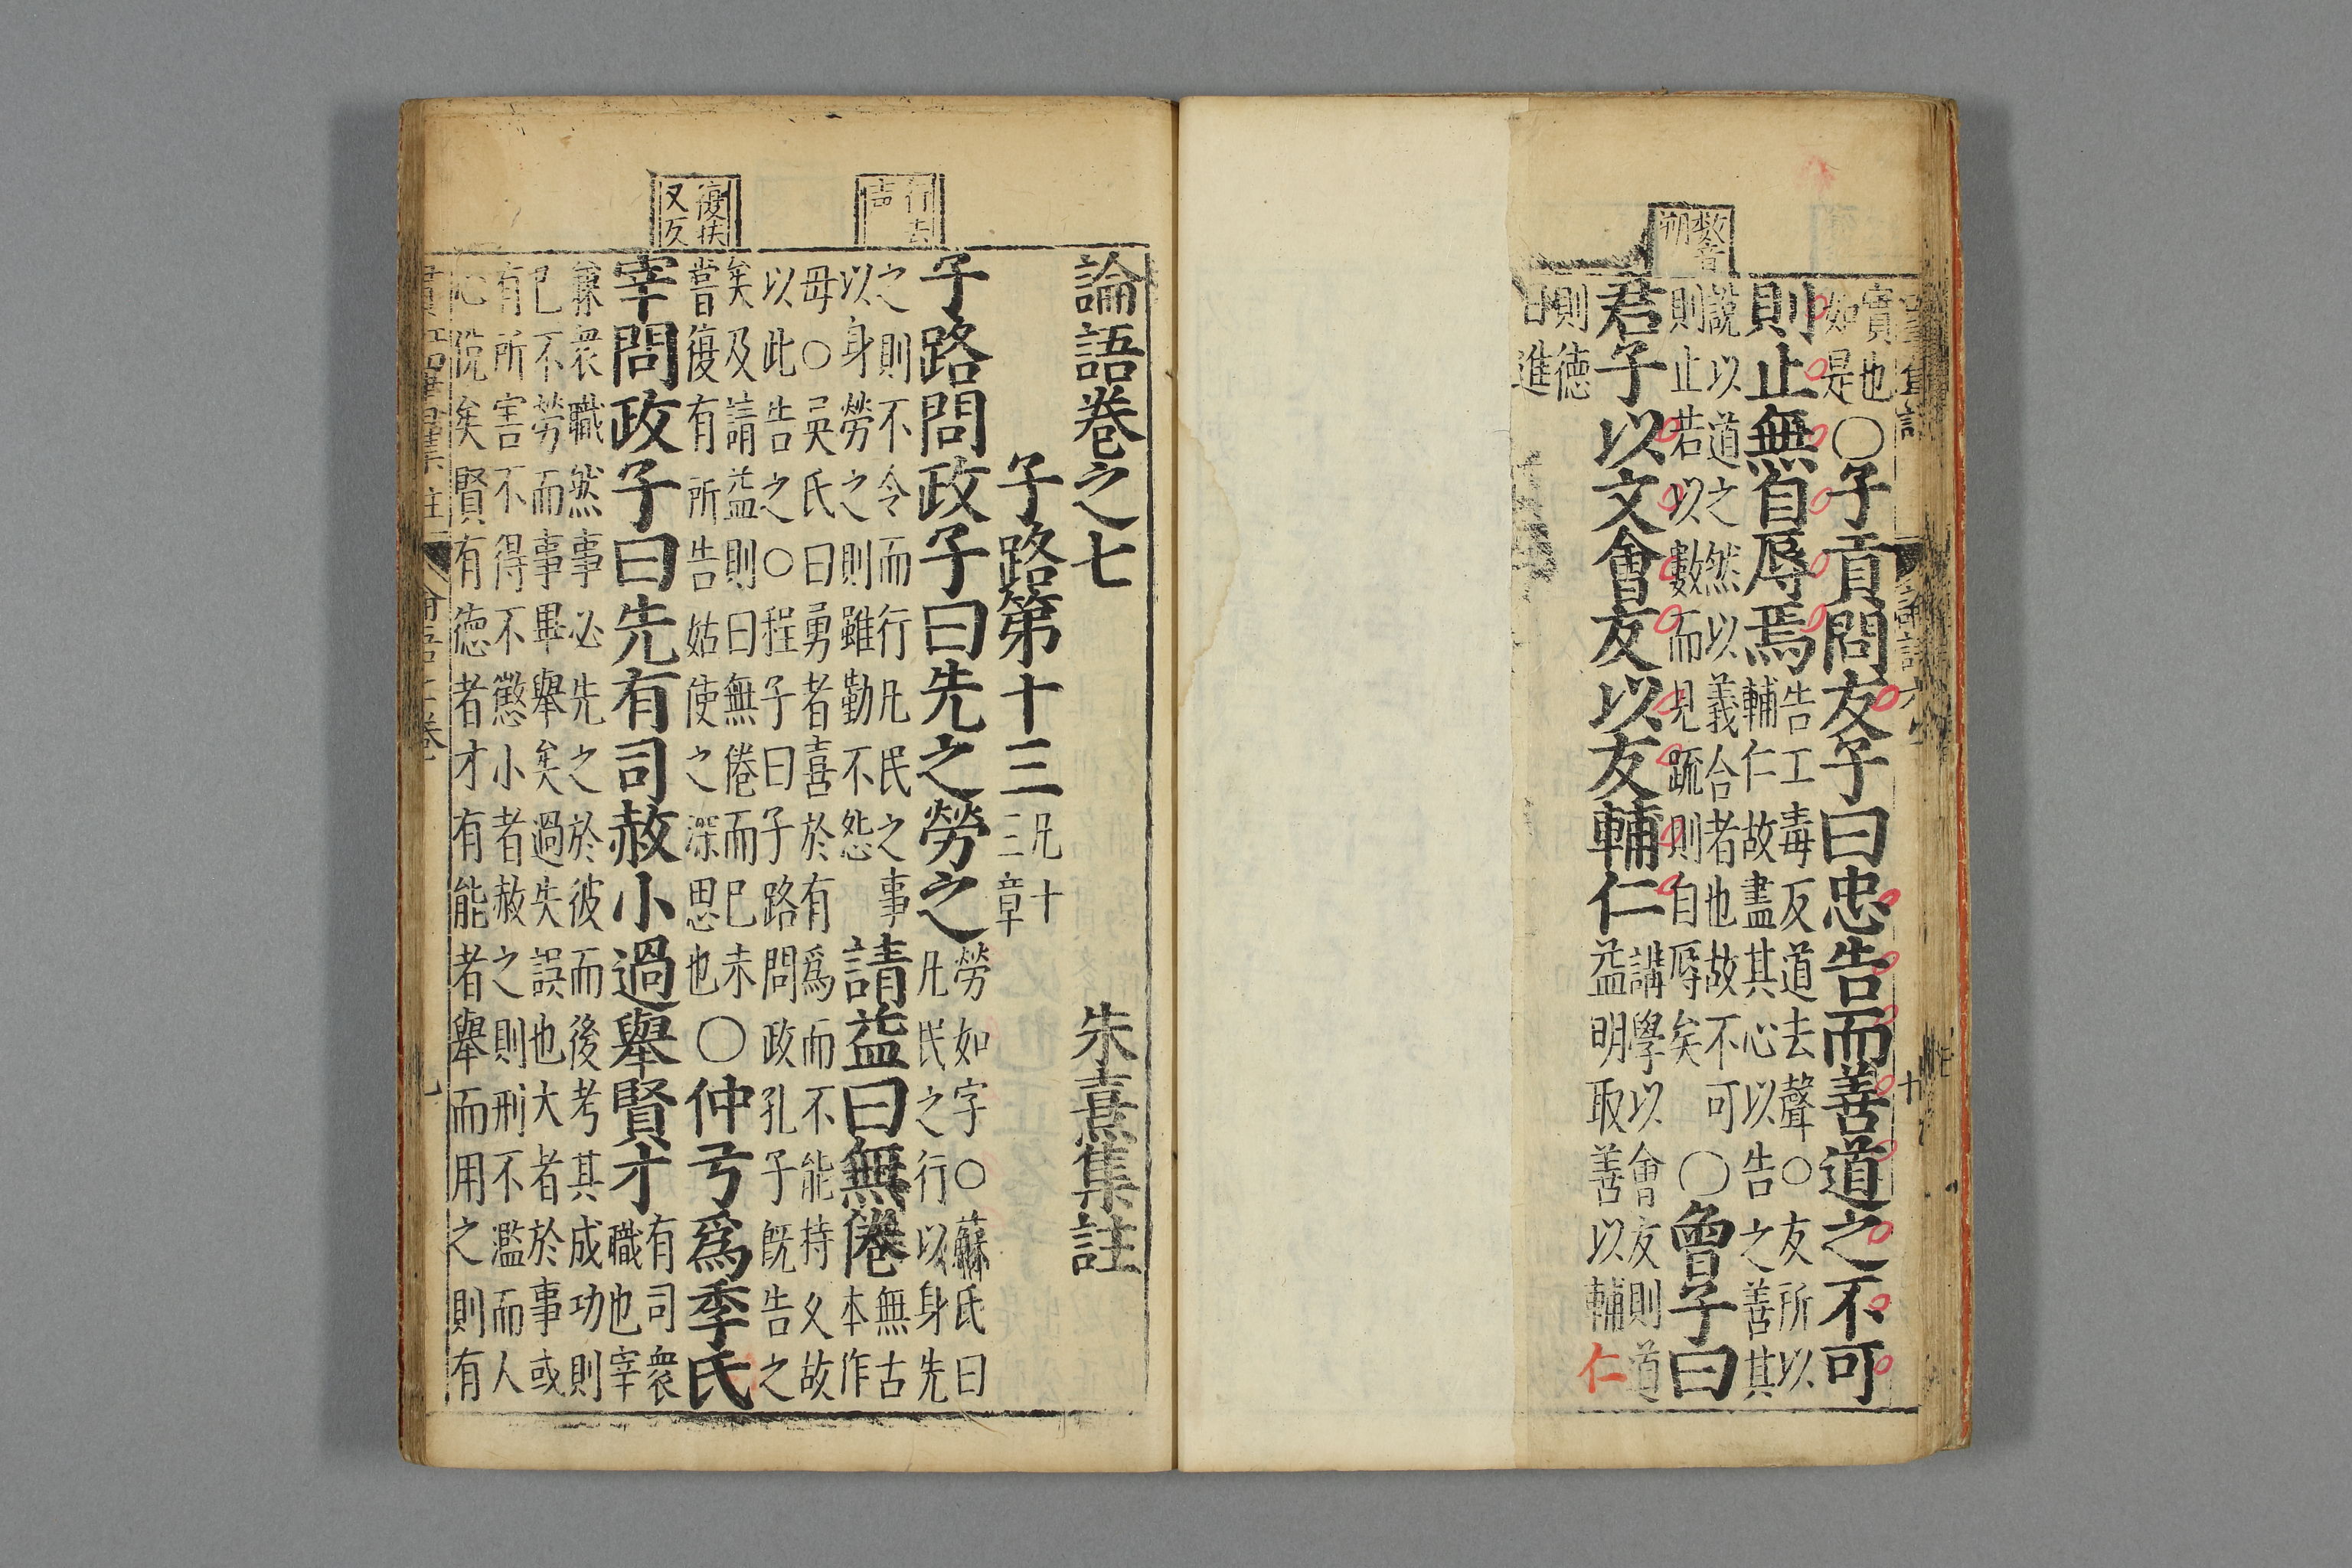 數音朔
實也
如是
○子貢問友子曰忠告而善道之不可
則止無自辱焉
告工毒反道去聲○友所以
輔仁故盡其心以告之善其
說以道之然以義合者也故不可
則止若以數而見疏則自辱矣
○曾子曰
君子以文會友以友輔仁
講學以會友則道
益明取善以輔仁
則德
日進
行去声
復扶又反
論語卷之七 朱熹集註
子路第十三
凡十
三章
子路問政子曰先之勞之
勞如字○蘇氏曰
凡民之行以身先
之則不令而行凡民之事
以身勞之則雖勤不怨
請益曰無倦
無古
本作
毋○吳氏曰勇者喜於有爲而不能持久故
以此告之○程子曰子路問政孔子旣告之
矣及請益則曰無倦而已未
嘗復有所告姑使之深思也
○仲弓爲季氏
宰問政子曰先有司赦小過舉賢才
有司衆
職也宰
兼衆職然事必先之於彼而後考其成功則
已不勞而事畢舉矣過失誤也大者於事或
有所害不得不懲小者赦之則刑不濫而人
心悅矣賢有德者才有能者舉而用之則有